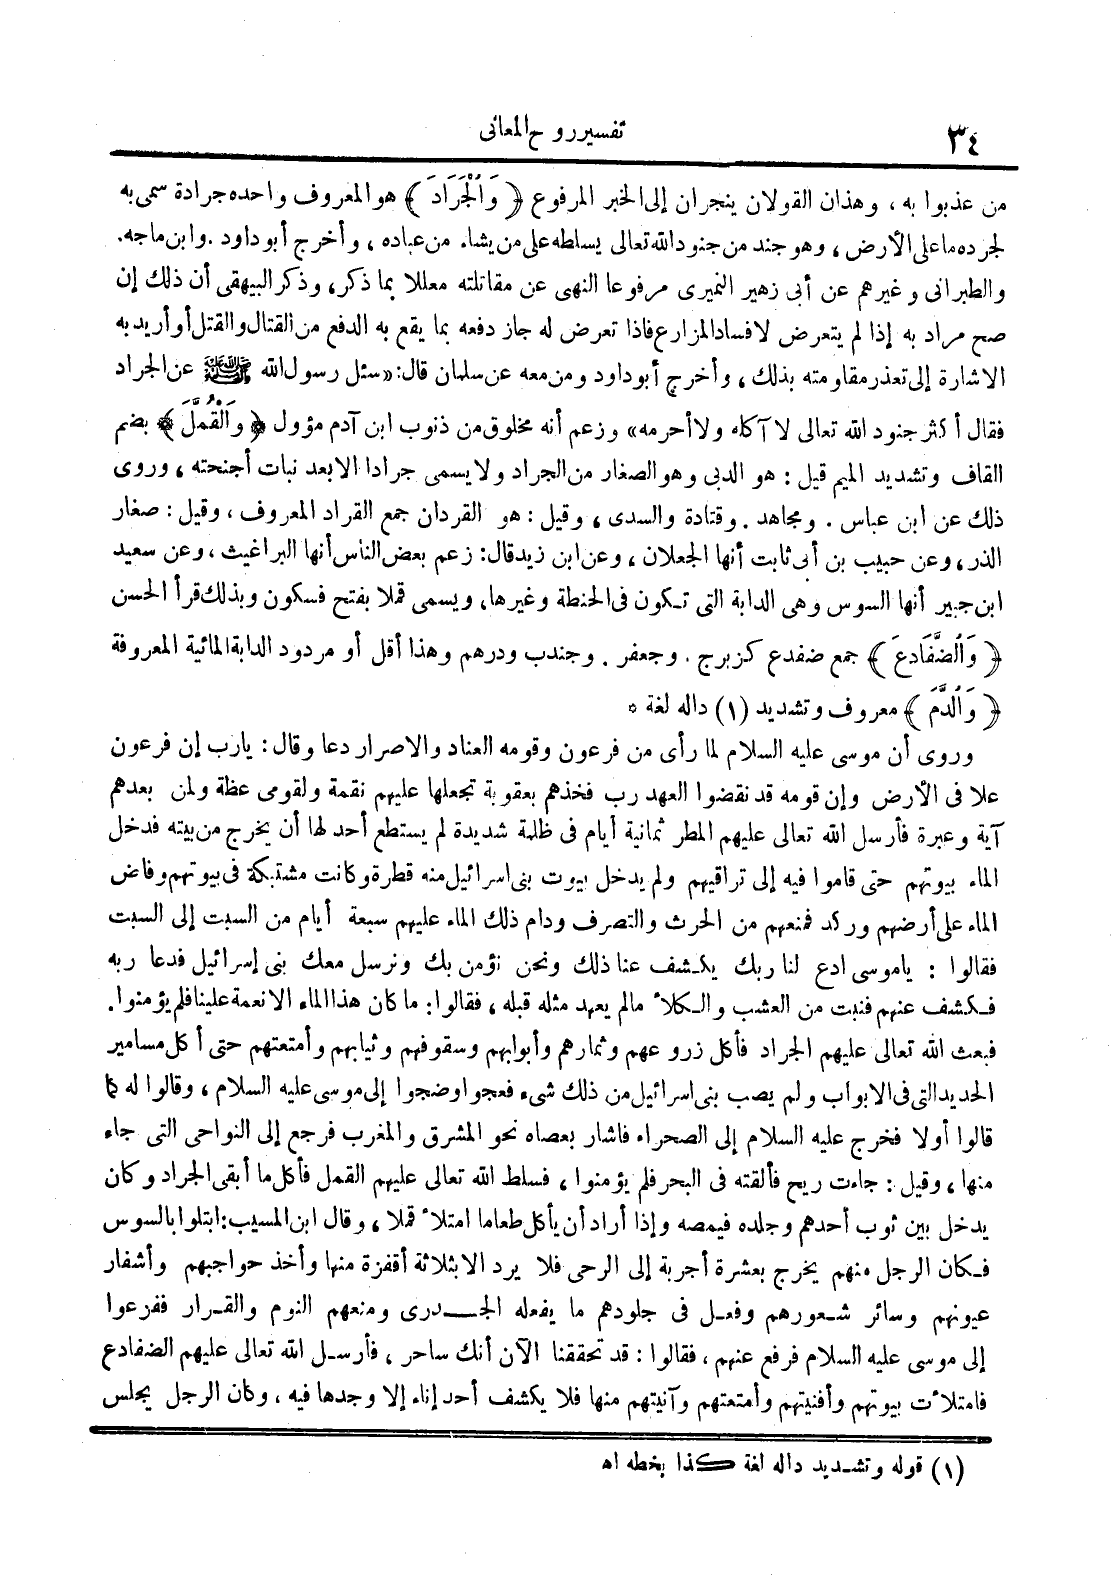 ٣٤
تفسير روح المعانى
من عذبوا به ، وهذان القولان ينجران إلى الخبر المرفوع ﴿ وَٱلْجَرَادَ ﴾ هو المعروف واحده جرادة سمى به
لجرده ما على الأرض ، وهو جند من جنود الله تعالى يسلطه على من يشاء من عباده ، وأخرج أبو داود . وابن ماجه .
والطبرانى وغيرهم عن أبى زهير النميرى مرفوعا النهى عن مقاتلته معللا بما ذكر ، وذكر البيهقى أن ذلك إن
صح مراد به إذا لم يتعرض لافساد المزارع فاذا تعرض له جاز دفعه بما يقع به الدفع من القتال والقتل أو أريد به
الاشارة إلى تعذر مقاومته بذلك ، وأخرج أبو داود ومن معه عن سلمان قال : «سئل رسول الله ﷺ عن الجراد
فقال أكثر جنود الله تعالى لا آكله ولا أحرمه» وزعم أنه مخلوق من ذنوب ابن آدم مؤول ﴿ وَٱلْقُمَّلَ ﴾ بضم
القاف وتشديد الميم قيل : هو الدبى وهو الصغار من الجراد ولا يسمى جرادا الا بعد نبات أجنحته ، وروى
ذلك عن ابن عباس . ومجاهد . وقتادة والسدى ، وقيل : هو القردان جمع القراد المعروف ، وقيل : صغار
الذر ، وعن حبيب بن أبى ثابت أنها الجعلان ، وعن ابن زيد قال : زعم بعض الناس أنها البراغيث ، وعن سعيد
ابن جبير أنها السوس وهى الدابة التى تكون فى الحنطة وغيرها ، ويسمى قملا بفتح فسكون وبذلك قرأ الحسن
﴿ وَٱلضَّفَادِعَ ﴾ جمع ضفدع كزبرج . وجعفر . وجندب ودرهم وهذا أقل أو مردود الدابة المائية المعروفة
﴿ وَٱلدَّمَ ﴾ معروف وتشديد (١) داله لغة *
وروى أن موسى عليه السلام لما رأى من فرعون وقومه العناد والاصرار دعا وقال : يارب إن فرعون
علا فى الأرض وإن قومه قد نقضوا العهد رب فخذهم بعقوبة تجعلها عليهم نقمة ولقومى عظة ولمن بعدهم
آية وعبرة فأرسل الله تعالى عليهم المطر ثمانية أيام فى ظلمة شديدة لم يستطع أحد لها أن يخرج من بيته فدخل
الماء بيوتهم حتى قاموا فيه إلى تراقيهم ولم يدخل بيوت بنى اسرائيل منه قطرة وكانت مشتبكة فى بيوتهم وفاض
الماء على أرضهم وركد فمنعهم من الحرث والتصرف ودام ذلك الماء عليهم سبعة أيام من السبت إلى السبت
فقالوا : ياموسى ادع لنا ربك يكشف عنا ذلك ونحن نؤمن بك ونرسل معك بنى إسرائيل فدعا ربه
فكشف عنهم فنبت من العشب والكلأ مالم يعهد مثله قبله ، فقالوا : ما كان هذا الماء الا نعمة علينا فلم يؤمنوا .
فبعث الله تعالى عليهم الجراد فأكل زروعهم وثمارهم وأبوابهم وسقوفهم وثيابهم وأمتعتهم حتى أكل مسامير
الحديد التى فى الابواب ولم يصب بنى اسرائيل من ذلك شىء فعجوا وضجوا إلى موسى عليه السلام ، وقالوا له كما
قالوا أولا فخرج عليه السلام إلى الصحراء فاشار بعصاه نحو المشرق والمغرب فرجع إلى النواحى التى جاء
منها ، وقيل : جاءت ريح فألقته فى البحر فلم يؤمنوا ، فسلط الله تعالى عليهم القمل فأكل ما أبقى الجراد وكان
يدخل بين ثوب أحدهم وجلده فيمصه وإذا أراد أن يأكل طعاما امتلأ قملا ، وقال ابن المسيب : ابتلوا بالسوس
فكان الرجل منهم يخرج بعشرة أجربة إلى الرحى فلا يرد الا بثلاثة أقفزة منها وأخذ حواجبهم وأشفار
عيونهم وسائر شعورهم وفعل فى جلودهم ما يفعله الجدرى ومنعهم النوم والقرار ففزعوا
إلى موسى عليه السلام فرفع عنهم ، فقالوا : قد تحققنا الآن أنك ساحر ، فأرسل الله تعالى عليهم الضفادع
فامتلأت بيوتهم وأفنيتهم وأمتعتهم وآنيتهم منها فلا يكشف أحد إناء إلا وجدها فيه ، وكان الرجل يجلس
(١) قوله وتشديد داله لغة كذا بخطه اه